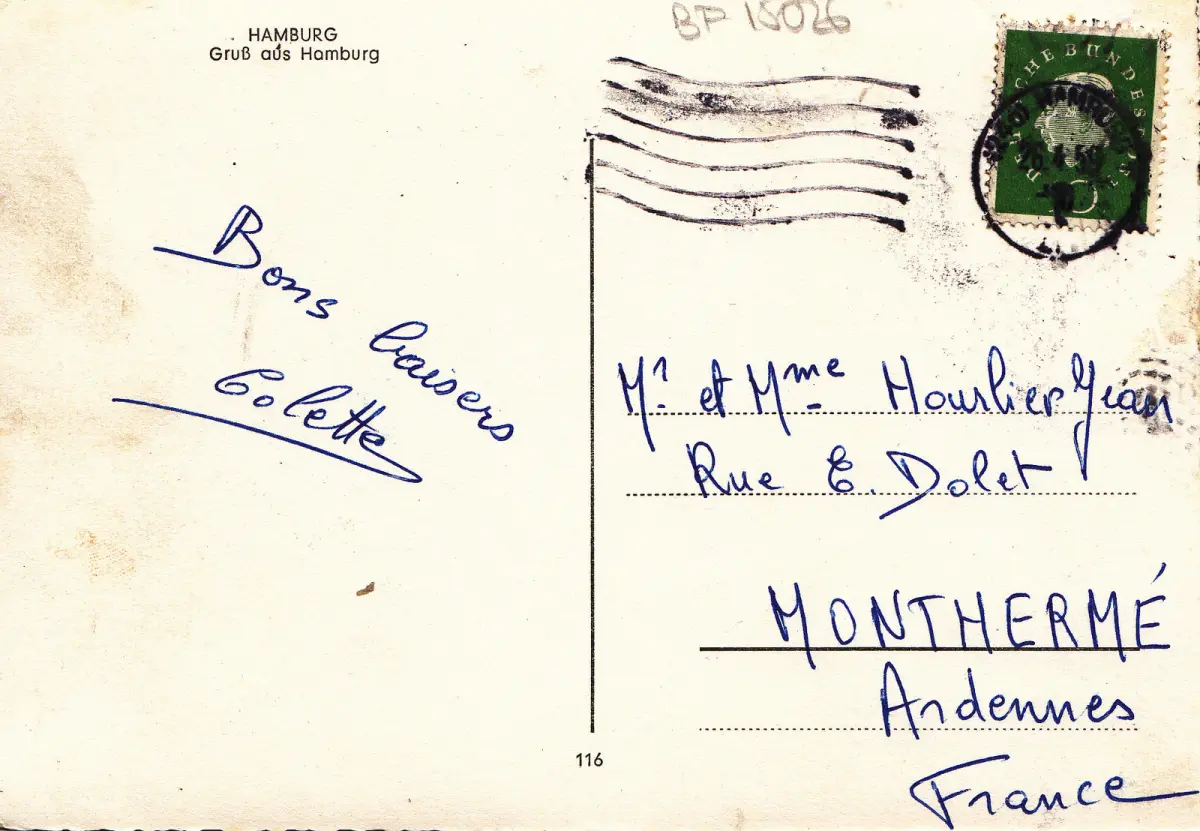 HAMBURG
Gruß aus Hamburg
BP 15026
DEUTSCHE BUNDESPOST
Bons baisers
Colette
Mr. et Mme Hourlier Jean
Rue E. Dolet
MONTHERMÉ
Ardennes
France
116